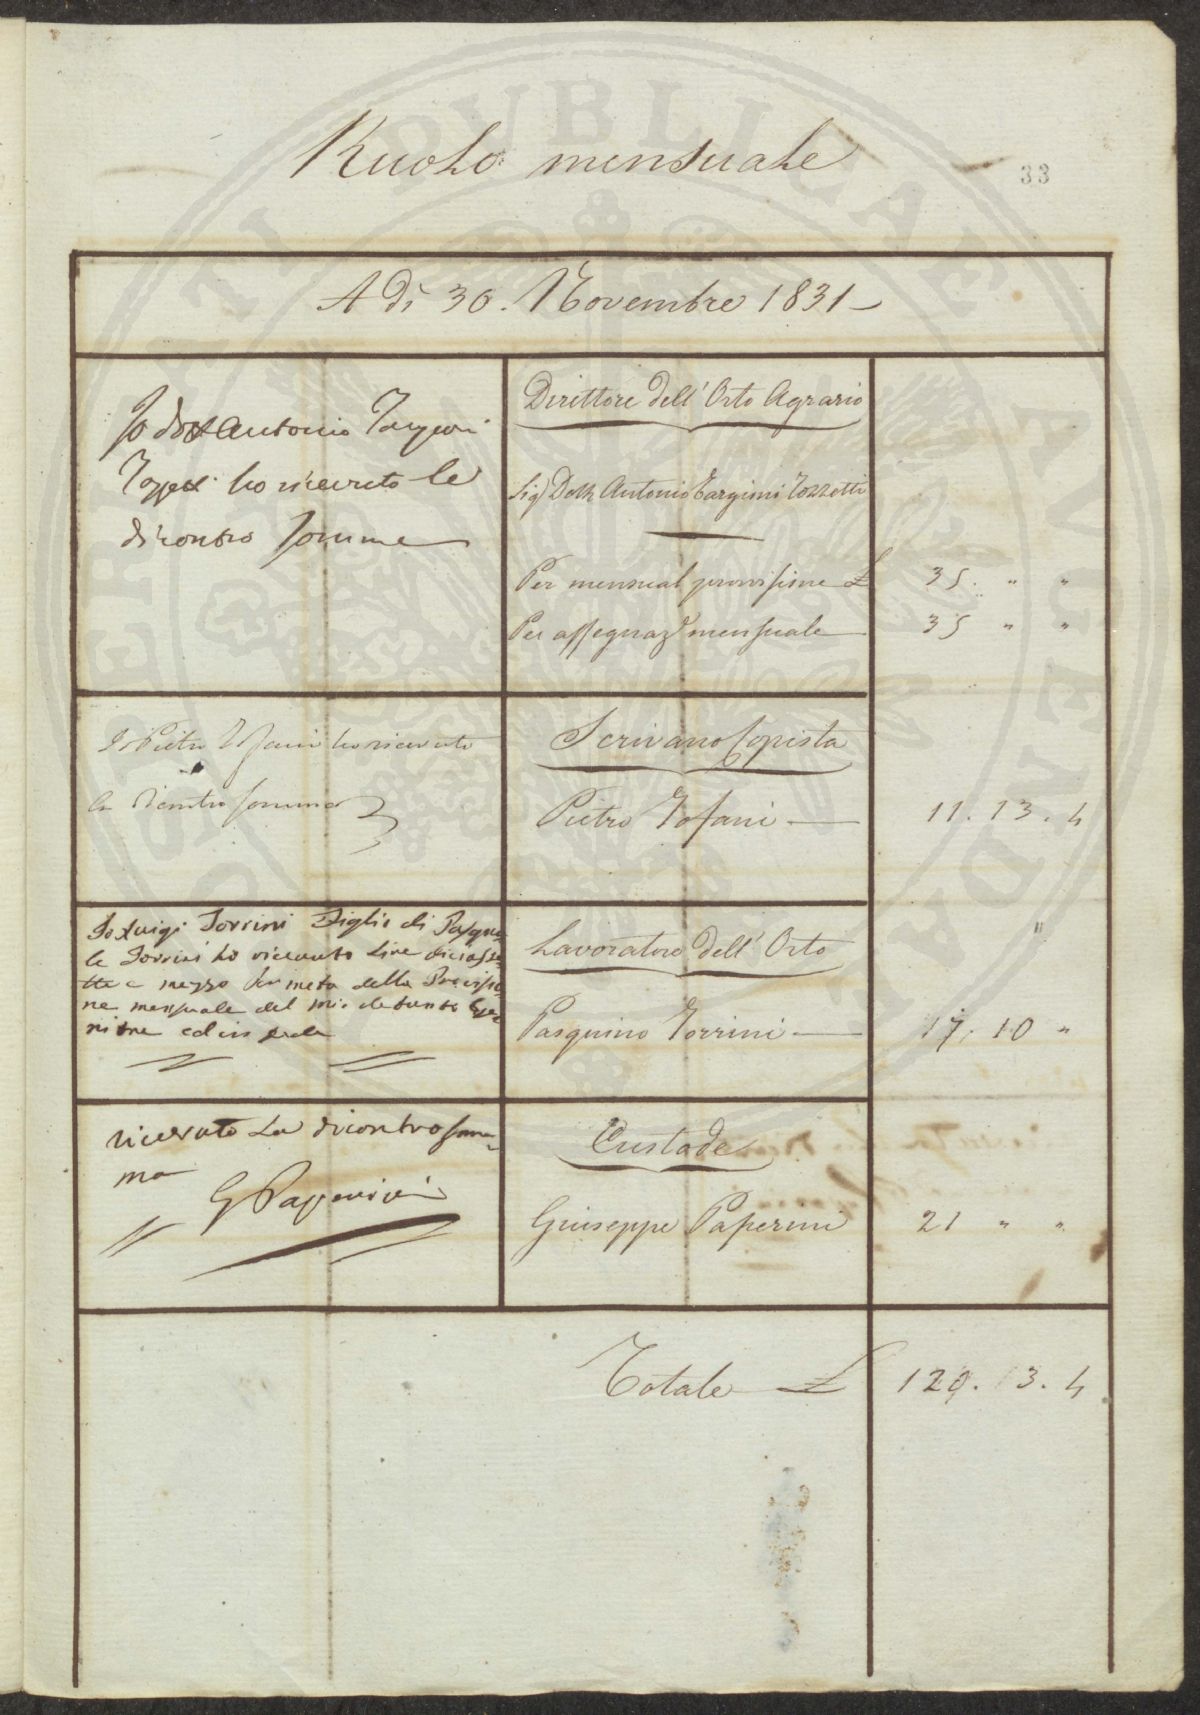 Ruolo mensuale
33
A Dì 30. Novembre 1831
Io dott Antonio Targioni
Tozzetti ho ricevuto le
dicontro somme
Direttore dell' Orto Agrario
Sig. Dott. Antonio Targioni Tozzetti
Per mensual provisione £ 35. " "
Per assegnaz.e mensuale 35 " "
Io Pietro Tofani ho ricevuto
la dicontro somma
Scrivano Copista
Pietro Tofani 11. 13. 4
Io Luigi Torrini Figlio di Pasqua
le Torrini ho ricevuto Lire diciasse
tte e mezzo per metà della Provisio
ne mensuale del mio defunto Ge
nitore ed in fede
Lavoratore dell' Orto
"
Pasquino Torrini 17. 10 "
ricevuto La dicontro som
ma
G Papperini
Custode
Giuseppe Paperini 21 " "
Totale £ 120. 3. 4